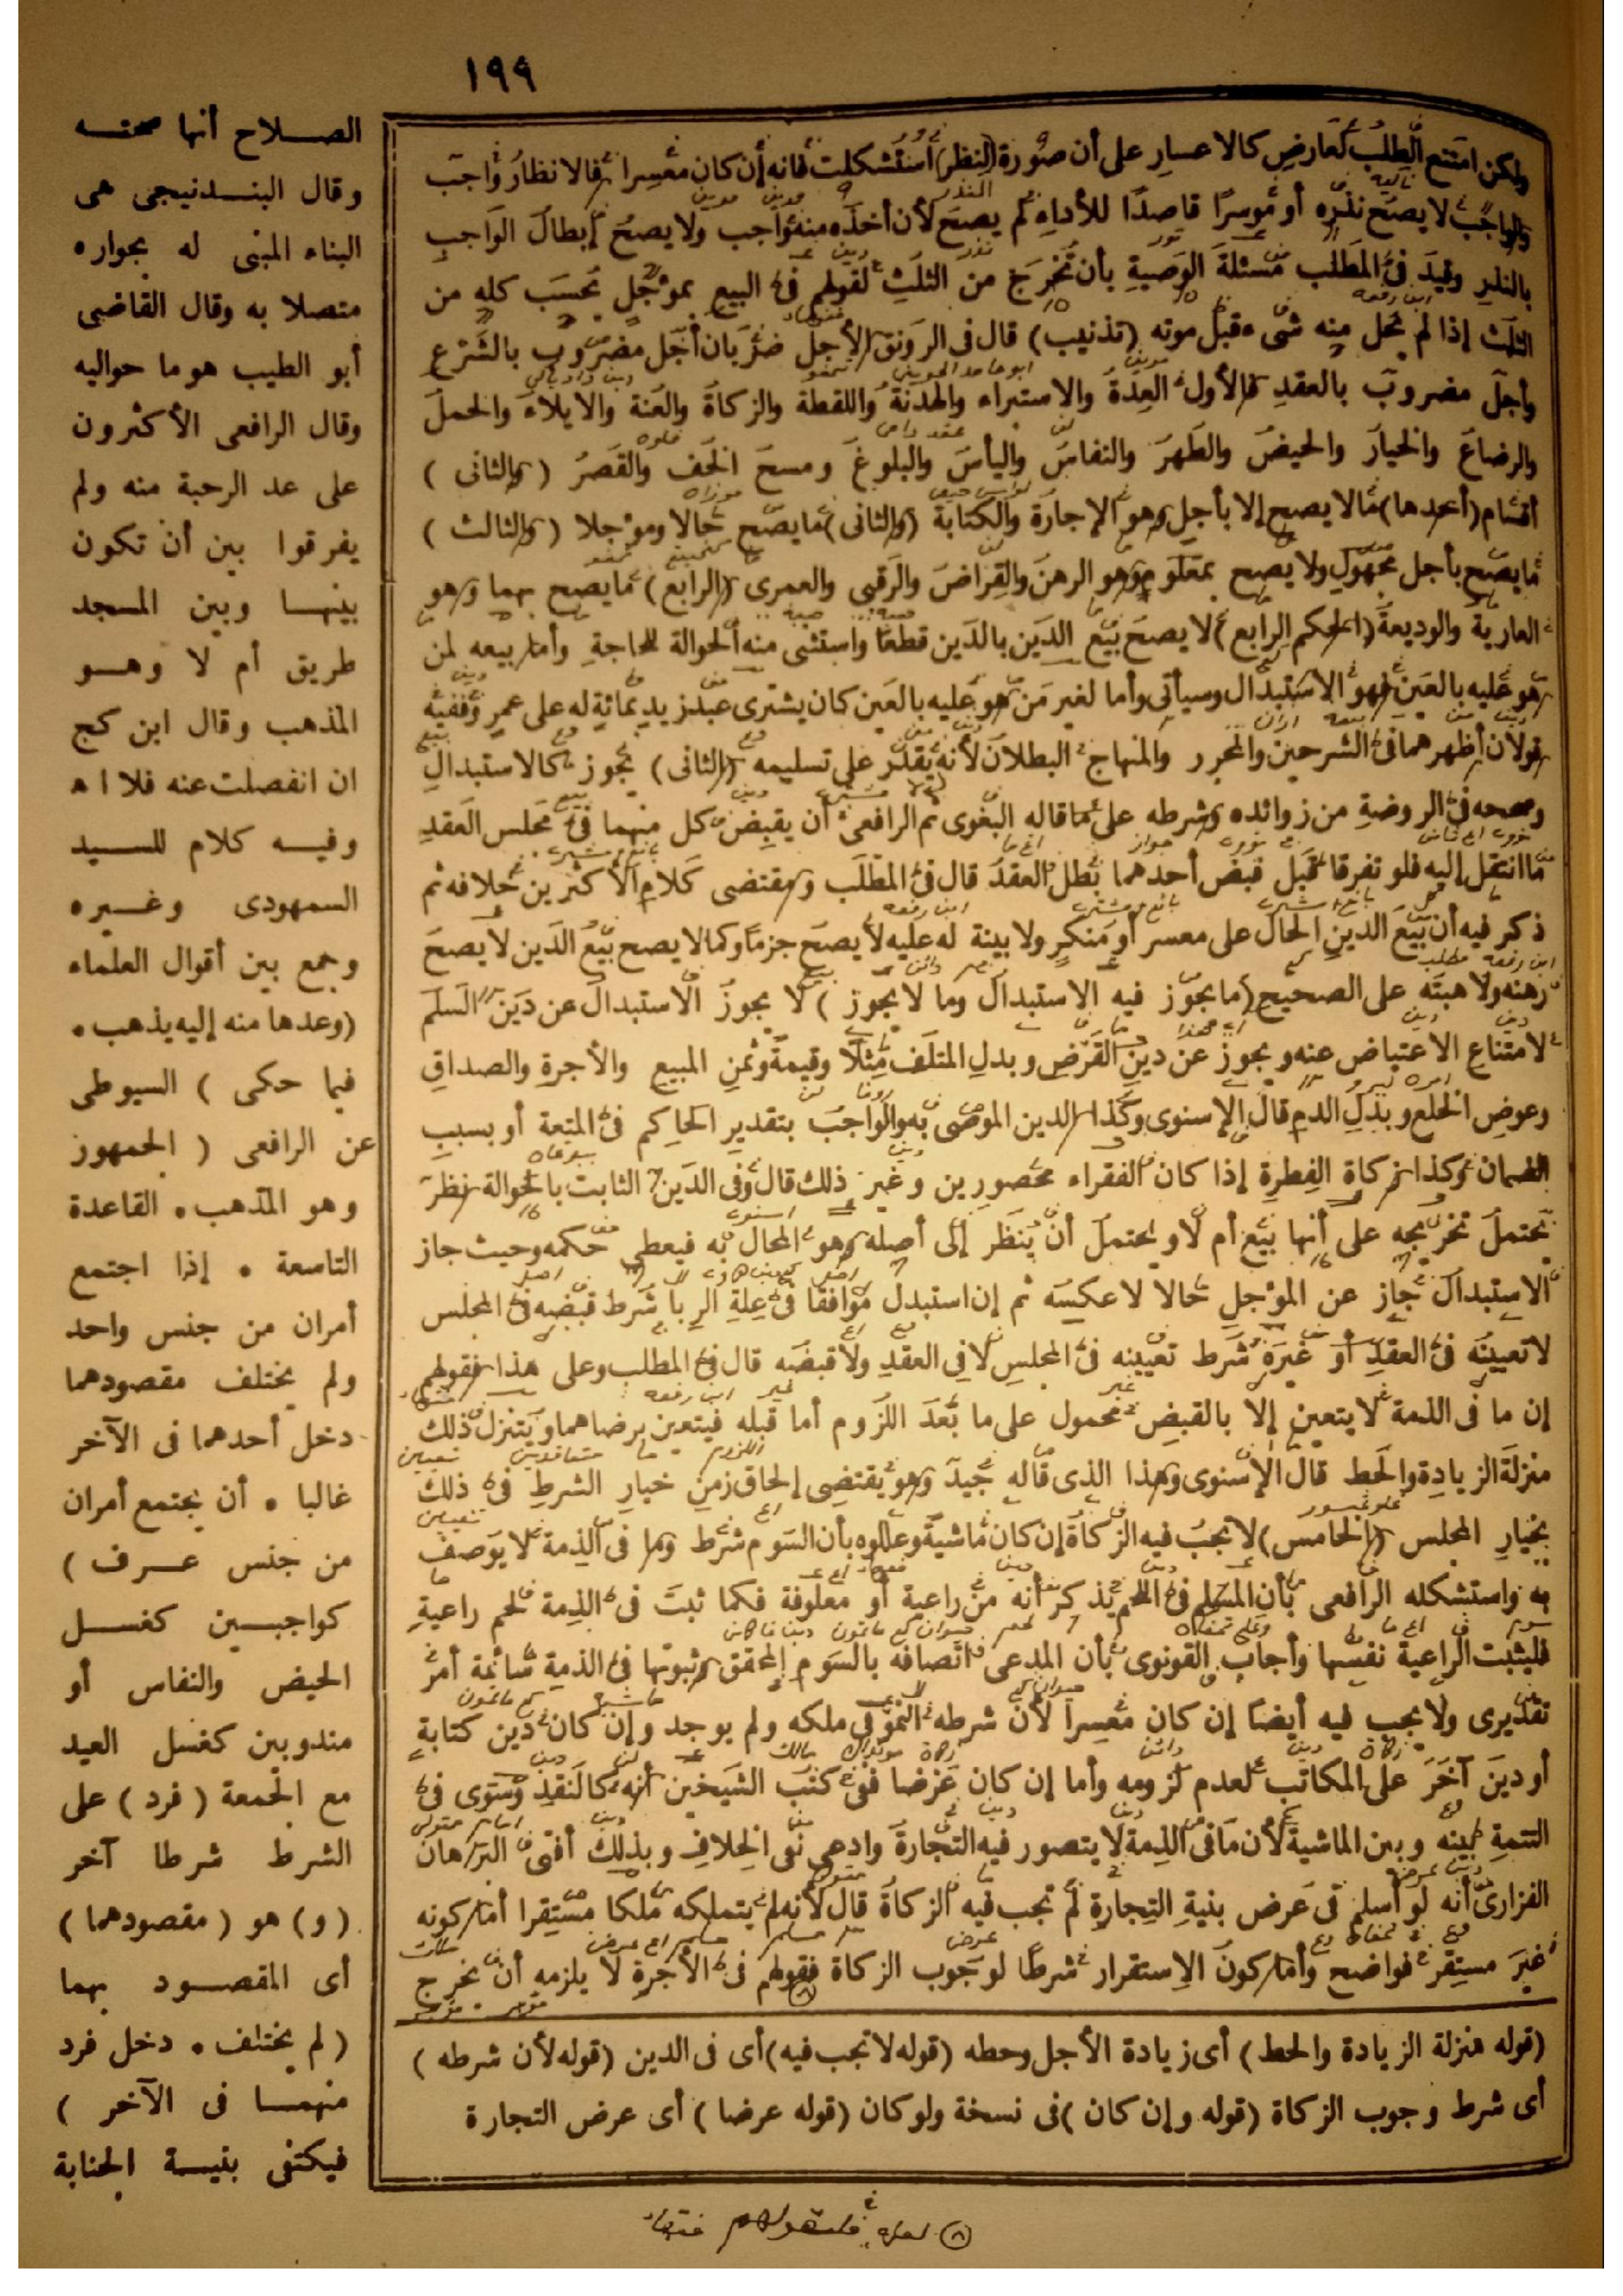 ١٩٩
ولكن امتنع الطلب لعارض كالاعسار على أن صورة (النظر) استشكلت فانه إن كان معسرا فالانظار واجب
والواجب لا يصح نذره أو موسرا قاصدا للأداء لم يصح لأن أخذه منه واجب ولا يصح إبطال الواجب
بالنذر وقيد فى المطلب مسئلة الوصية بأن تخرج من الثلث لقولهم فى البيع بمؤجل يحسب كله من
الثلث إذا لم يحل منه شىء قبل موته (تذنيب) قال فى الرونق الأجل ضربان أجل مضروب بالشرع
وأجل مضروب بالعقد فالأول العدة والاستبراء والهدنة واللقطة والزكاة والعنة والايلاء والحمل
والرضاع والخيار والحيض والطهر والنفاس واليأس والبلوغ ومسح الخف والقصر (والثانى)
أقسام (أحدها) مالا يصح إلا بأجل وهو الإجارة والكتابة (والثانى) ما يصح حالا ومؤجلا (والثالث)
ما يصح بأجل مجهول ولا يصح بمعلوم وهو الرهن والقراض والرقبى والعمرى (الرابع) ما يصح بهما وهو
العارية والوديعة (الحكم الرابع) لا يصح بيع الدين بالدين قطعا واستثنى منه الحوالة للحاجة وأما بيعه لمن
هو عليه بالعين فهو الاستبدال وسيأتى وأما لغير من هو عليه بالعين كان يشترى عبد زيد بمائة له على عمرو ففيه
قولان أظهرهما فى الشرحين والمحرر والمنهاج البطلان لأنه لا يقدر على تسليمه (الثانى) يجوز كالاستبدال
وصححه فى الروضة من زوائده وشرطه على ما قاله البغوى ثم الرافعى أن يقبض كل منهما فى مجلس العقد
ما انتقل إليه فلو تفرقا قبل قبض أحدهما بطل العقد قال فى المطلب ومقتضى كلام الأكثرين خلافه ثم
ذكر فيه أن بيع الدين الحال على معسر أو منكر ولا بينة له عليه لا يصح جزما وكما لا يصح بيع الدين لا يصح
رهنه ولا هبته على الصحيح (ما يجوز فيه الاستبدال وما لا يجوز) لا يجوز الاستبدال عن دين السلم
لامتناع الاعتياض عنه ويجوز عن دين القرض وبدل المتلف مثلا وقيمة وثمن المبيع والأجرة والصداق
وعوض الخلع وبدل الدم قال الإسنوى وكذا الدين الموصى به والواجب بتقدير الحاكم فى المتعة أو بسبب
الضمان وكذا زكاة الفطرة إذا كان الفقراء محصورين وغير ذلك قال وفى الدين الثابت بالحوالة نظر
يحتمل تخريجه على أنها بيع أم لا ويحتمل أن ينظر إلى أصله وهو المحال به فيعطى حكمه وحيث جاز
الاستبدال جاز عن المؤجل حالا لا عكسه ثم إن استبدل موافقا فى علة الربا شرط قبضه فى المجلس
لا تعيينه فى العقد أو غيره شرط تعيينه فى المجلس لا فى العقد ولا قبضه قال فى المطلب وعلى هذا فقولهم
إن ما فى الذمة لا يتعين إلا بالقبض محمول على ما بعد اللزوم أما قبله فيتعين برضاهما ويتنزل ذلك
منزلة الزيادة والحط قال الإسنوى وهذا الذى قاله جيد وهو يقتضى إلحاق زمن خيار الشرط فى ذلك
بخيار المجلس (الخامس) لا تجب فيه الزكاة إن كان ماشية وعللوه بأن السوم شرط وما فى الذمة لا يوصف
به واستشكله الرافعى بأن المسلم فى اللحم يذكر أنه من راعية أو معلوفة فكما ثبت فى الذمة لحم راعية
فليثبت الراعية نفسها وأجاب القونوى بأن المدعى اتصافه بالسوم المحقق وثبوتها فى الذمة سائمة أمر
تقديرى ولا يجب فيه أيضا إن كان معسرا لأن شرطه النمو فى ملكه ولم يوجد وإن كان دين كتابة
أو دين آخر على المكاتب لعدم لزومه وأما إن كان عرضا ففى كتب الشيخين أنه كالنقد وسوى فى
التتمة بينه وبين الماشية لأن ما فى الذمة لا يتصور فيه التجارة وادعى نفى الخلاف وبذلك أفتى البرهان
الفزارى أنه لو أسلم فى عرض بنية التجارة لم تجب فيه الزكاة قال لأنه لم يتملكه ملكا مستقرا أما كونه
غير مستقر فواضح وأما كون الاستقرار شرطا لوجوب الزكاة فقولهم فى الأجرة لا يلزمه أن يخرج
(قوله منزلة الزيادة والحط) أى زيادة الأجل وحطه (قوله لا تجب فيه) أى فى الدين (قوله لأن شرطه)
أى شرط وجوب الزكاة (قوله وإن كان) فى نسخة ولو كان (قوله عرضا) أى عرض التجارة
الصلاح أنها صحنه
وقال البندنيجى هى
البناء المبنى له بجواره
متصلا به وقال القاضى
أبو الطيب هو ما حواليه
وقال الرافعى الأكثرون
على عد الرحبة منه ولم
يفرقوا بين أن تكون
بينها وبين المسجد
طريق أم لا وهو
المذهب وقال ابن كج
ان انفصلت عنه فلا اه
وفيه كلام للسيد
السمهودى وغيره
وجمع بين أقوال العلماء
(وعدها منه إليه يذهب .
فيما حكى) السيوطى
عن الرافعى (الجمهور
وهو المذهب . القاعدة
التاسعة . إذا اجتمع
أمران من جنس واحد
ولم يختلف مقصودهما
دخل أحدهما فى الآخر
غالبا . أن يجتمع أمران
من جنس عرف)
كواجبين كغسل
الحيض والنفاس أو
مندوبين كغسل العيد
مع الجمعة (فرد) على
الشرط شرطا آخر
(و) هو (مقصودهما)
أى المقصود بهما
(لم يختلف . دخل فرد
منهما فى الآخر)
فيكتفى بنية الجنابة